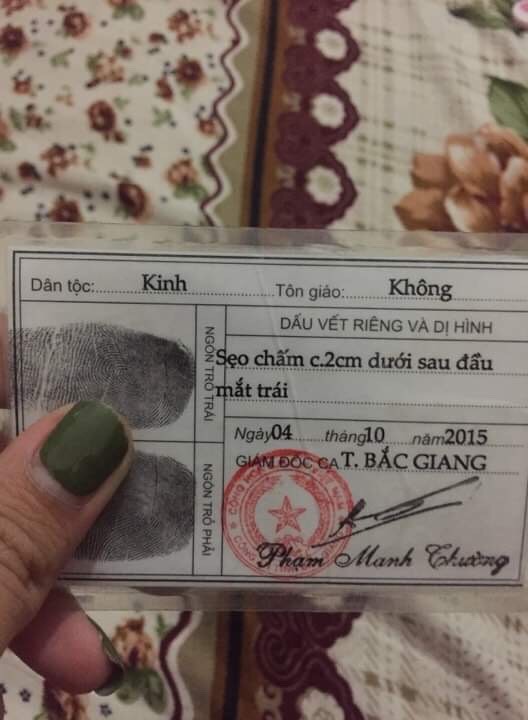 Dân tộc: Kinh Tôn giáo: Không
DẤU VẾT RIÊNG VÀ DỊ HÌNH
Sẹo chấm c.2cm dưới sau đầu
mắt trái
NGÓN TRỎ TRÁI
Ngày 04 tháng 10 năm 2015
GIÁM ĐỐC CA T. BẮC GIANG
NGÓN TRỎ PHẢI
Phạm Manh Chường